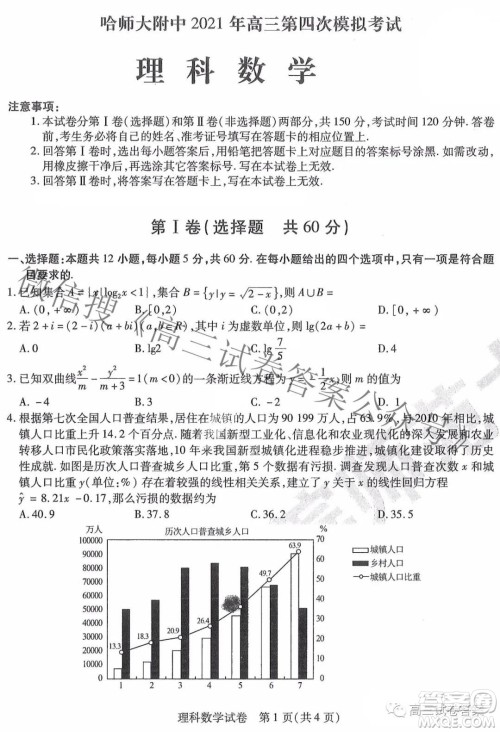 哈师大附中 2021 年高三第四次模拟考试
理科数学
注意事项:
1. 本试卷分第Ⅰ卷(选择题)和第Ⅱ卷(非选择题)两部分,共 150 分,考试时间 120 分钟. 答卷
前,考生务必将自己的姓名、准考证号填写在答题卡的相应位置上.
2. 回答第Ⅰ卷时,选出每小题答案后,用铅笔把答题卡上对应题目的答案标号涂黑. 如需改动,
用橡皮擦干净后,再选涂其它答案标号,写在本试卷上无效.
3. 回答第Ⅱ卷时,将答案写在答题卡上,写在本试卷上无效.
第Ⅰ卷(选择题 共 60 分)
一、选择题:本题共 12 小题,每小题 5 分,共 60 分. 在每小题给出的四个选项中,只有一项是符合题
目要求的.
1. 已知集合 A={x|log₂x<1},集合 B={y|y=√(2-x)},则 A∪B=
A. (0,+∞) B. [0,2) C. (0,2) D. [0,+∞)
2. 若 2+i=(2-i)(a+bi)(a,b∈R),其中 i 为虚数单位,则 lg(2a+b)=
A. 0 B. lg2 C. lg 7/5 D. 1
3. 已知双曲线 x²/m - y²/(m+3) =1(m<0)的一条渐近线方程为
则 m 的值为
A. -4 B. 3 C. -2 D. 1
4. 根据第七次全国人口普查结果,居住在城镇的人口为 90 199 万人,占 63.9%,与 2010 年相比,城
镇人口比重上升 14.2 个百分点. 随着我国新型工业化、信息化和农业现代化的深入发展和农业
转移人口市民化政策落实落地,10 年来我国新型城镇化进程稳步推进,城镇化建设取得了历史
性成就. 如图是历次人口普查城乡人口及城镇人口比重,第 5 个数据有污损. 调查发现人口普查次数 x 和城
镇人口比重 y(单位:%)存在着较强的线性相关关系,y 关于 x 的线性回归方程
ŷ=8.21x-0.17,那么污损的数据约为
A. 40.9 B. 37.8 C. 36.2 D. 35.5
万人 历次人口普查城乡人口 %
100000 90000 80000 70000 60000 50000 40000 30000 20000 10000 0
70 60 50 40 30 20 10 0
13.3 18.3 20.9 26.4 49.7 63.9
城镇人口
乡村人口
城镇人口比重
1 2 3 4 5 6 7
理科数学试卷 第 1 页(共 4 页)
微信搜《高三试卷答案公众号》
高三试卷答案